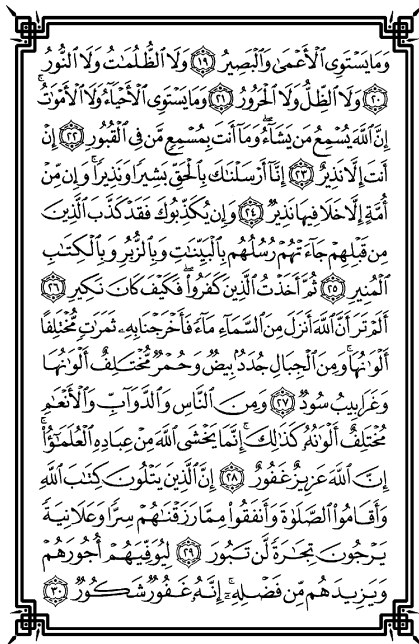 وَمَا يَسْتَوِى ٱلْأَعْمَىٰ وَٱلْبَصِيرُ ١٩ وَلَا ٱلظُّلُمَٰتُ وَلَا ٱلنُّورُ
٢٠ وَلَا ٱلظِّلُّ وَلَا ٱلْحَرُورُ ٢١ وَمَا يَسْتَوِى ٱلْأَحْيَآءُ وَلَا ٱلْأَمْوَٰتُ ۚ
إِنَّ ٱللَّهَ يُسْمِعُ مَن يَشَآءُ ۖ وَمَآ أَنتَ بِمُسْمِعٍ مَّن فِى ٱلْقُبُورِ ٢٢ إِنْ
أَنتَ إِلَّا نَذِيرٌ ٢٣ إِنَّآ أَرْسَلْنَٰكَ بِٱلْحَقِّ بَشِيرًا وَنَذِيرًا ۚ وَإِن مِّنْ
أُمَّةٍ إِلَّا خَلَا فِيهَا نَذِيرٌ ٢٤ وَإِن يُكَذِّبُوكَ فَقَدْ كَذَّبَ ٱلَّذِينَ
مِن قَبْلِهِمْ جَآءَتْهُمْ رُسُلُهُم بِٱلْبَيِّنَٰتِ وَبِٱلزُّبُرِ وَبِٱلْكِتَٰبِ
ٱلْمُنِيرِ ٢٥ ثُمَّ أَخَذْتُ ٱلَّذِينَ كَفَرُوا۟ ۖ فَكَيْفَ كَانَ نَكِيرِ ٢٦
أَلَمْ تَرَ أَنَّ ٱللَّهَ أَنزَلَ مِنَ ٱلسَّمَآءِ مَآءً فَأَخْرَجْنَا بِهِۦ ثَمَرَٰتٍ مُّخْتَلِفًا
أَلْوَٰنُهَا ۚ وَمِنَ ٱلْجِبَالِ جُدَدٌۢ بِيضٌ وَحُمْرٌ مُّخْتَلِفٌ أَلْوَٰنُهَا
وَغَرَابِيبُ سُودٌ ٢٧ وَمِنَ ٱلنَّاسِ وَٱلدَّوَآبِّ وَٱلْأَنْعَٰمِ
مُخْتَلِفٌ أَلْوَٰنُهُۥ كَذَٰلِكَ ۗ إِنَّمَا يَخْشَى ٱللَّهَ مِنْ عِبَادِهِ ٱلْعُلَمَٰٓؤُا۟ ۗ
إِنَّ ٱللَّهَ عَزِيزٌ غَفُورٌ ٢٨ إِنَّ ٱلَّذِينَ يَتْلُونَ كِتَٰبَ ٱللَّهِ
وَأَقَامُوا۟ ٱلصَّلَوٰةَ وَأَنفَقُوا۟ مِمَّا رَزَقْنَٰهُمْ سِرًّا وَعَلَانِيَةً
يَرْجُونَ تِجَٰرَةً لَّن تَبُورَ ٢٩ لِيُوَفِّيَهُمْ أُجُورَهُمْ
وَيَزِيدَهُم مِّن فَضْلِهِۦٓ ۚ إِنَّهُۥ غَفُورٌ شَكُورٌ ٣٠